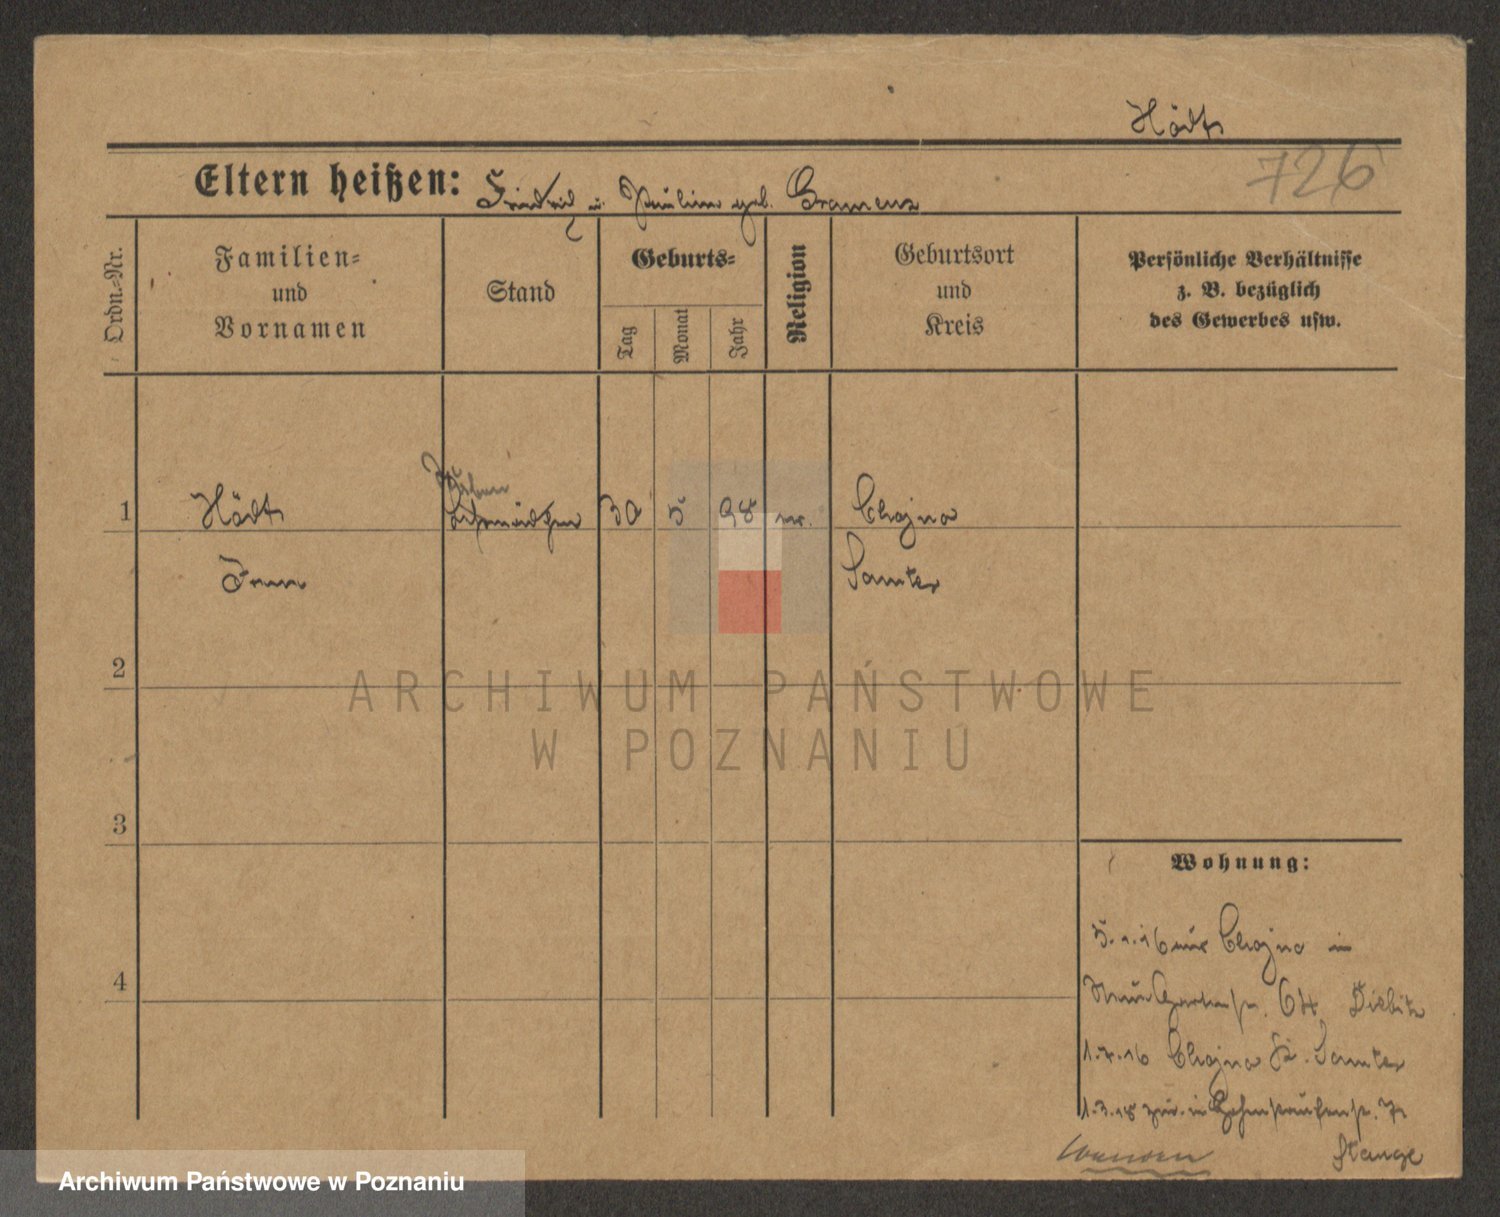 Hödt
726
Eltern heißen: Friedrich u. Pauline geb. Gramenz
Ordn.-Nr.
Familien-
und
Vornamen
Stand
Geburts-
Tag
Monat
Jahr
Religion
Geburtsort
und
Kreis
Persönliche Verhältnisse
z. B. bezüglich
des Gewerbes usw.
1
Hödt
30
5
98
ev.
Chojno
Samter
2
ARCHIWUM PAŃSTWOWE
W POZNANIU
3
Wohnung:
5.1.16 aus Chojno in
4
Neue Gartenstr. 64
1.7.16 Chojno Kr. Samter
1.3.18 zur. in Hohenstaufenstr. 7
Stange
wenden
Archiwum Państwowe w Poznaniu